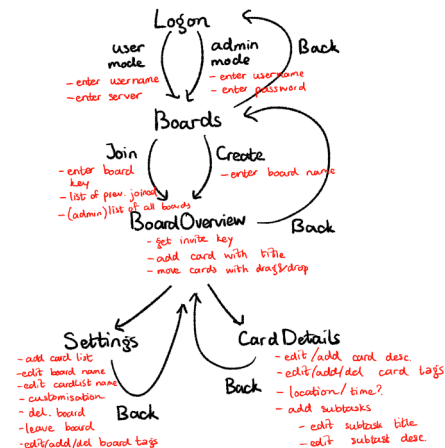 Logon
user
mode
- enter username
- enter server
admin
mode
- enter username
- enter password
Back
Boards
Join
- enter board
key
- list of prev. joined
- (admin) list of all boards
Create
- enter board name
Board Overview
- get invite key
- add card with title
- move cards with drag&drop
Back
Settings
- add card list
- edit board name
- edit cardlist name
- customisation
- del. board
- leave board
- edit/add/del board tags
Back
Card Details
- edit/add card desc.
- edit/add/del card tags
- location/time?
- add subtasks
- edit subtask title
- edit subtask desc.
Back